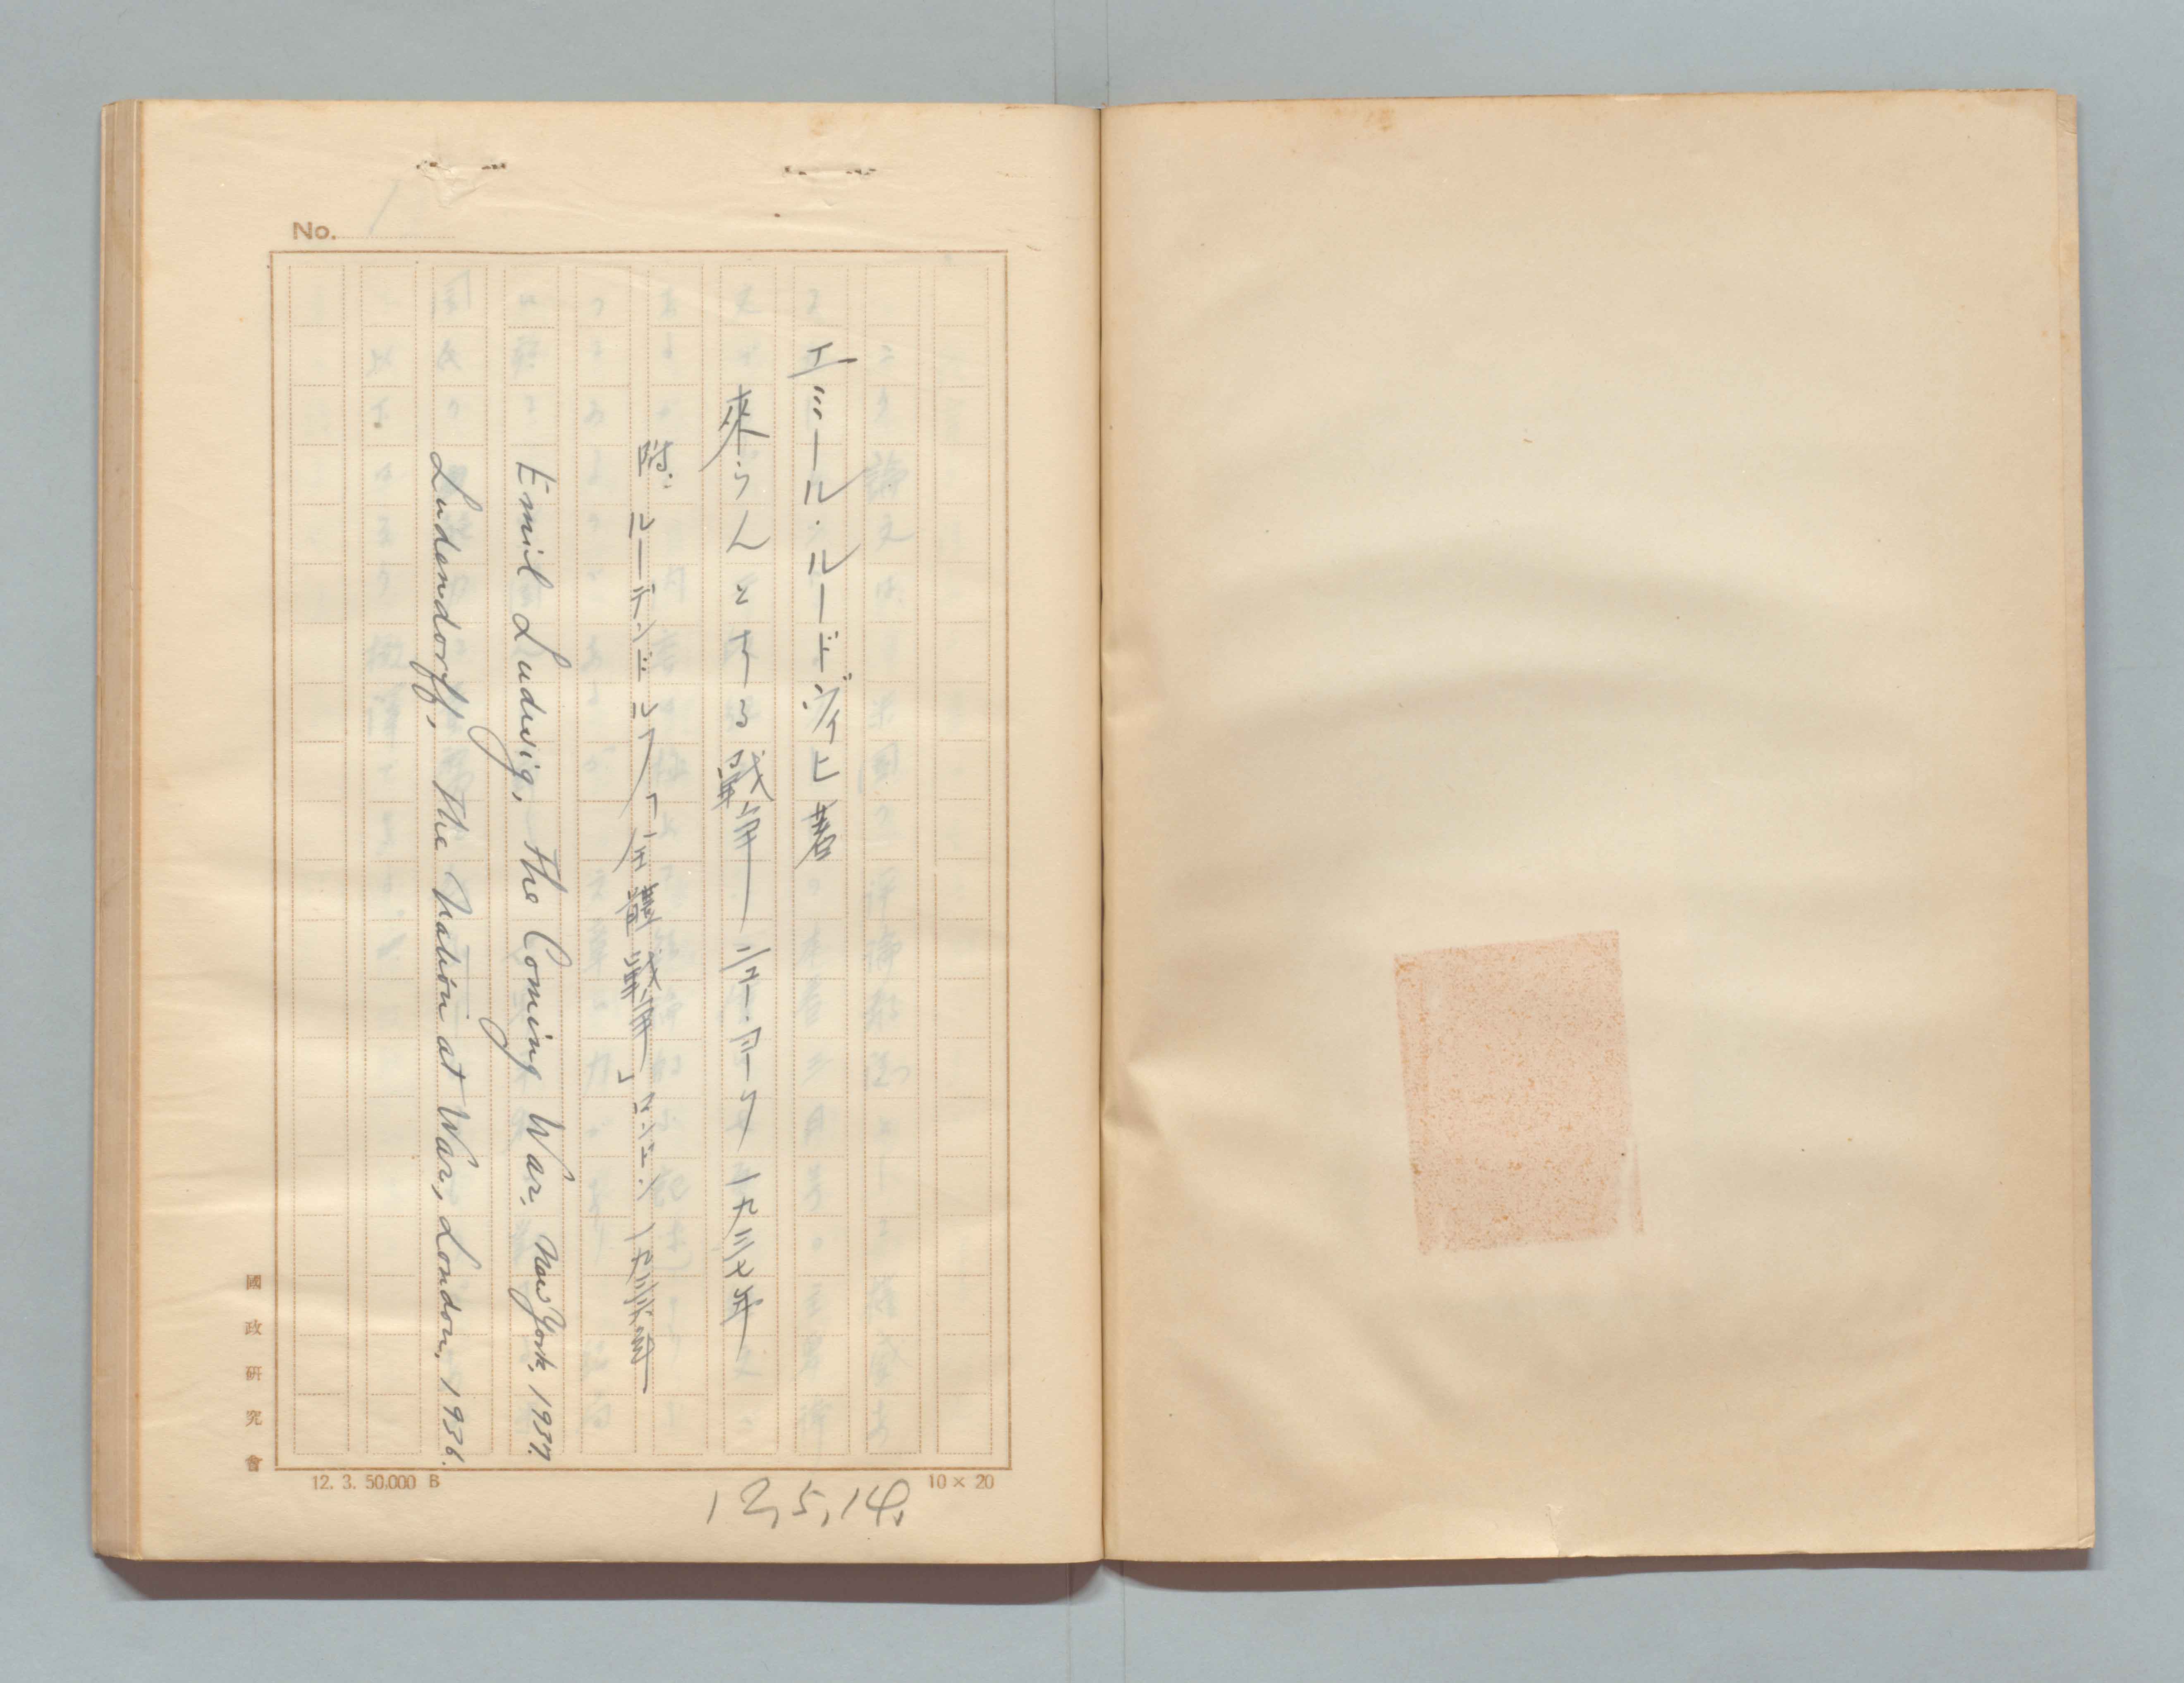 No. 1
エミール・ルードヴィヒ著
來らんとする戰爭 ニュー・ヨーク 一九三七年
附: ルーデンドルフ「全體戰爭」ロンドン 一九三六年
Emil Ludwig, The Coming War. New York, 1937.
Ludendorff, The Nation at War, London, 1936.
國政研究會
12. 3. 50,000 B
10 × 20
12, 5, 14,